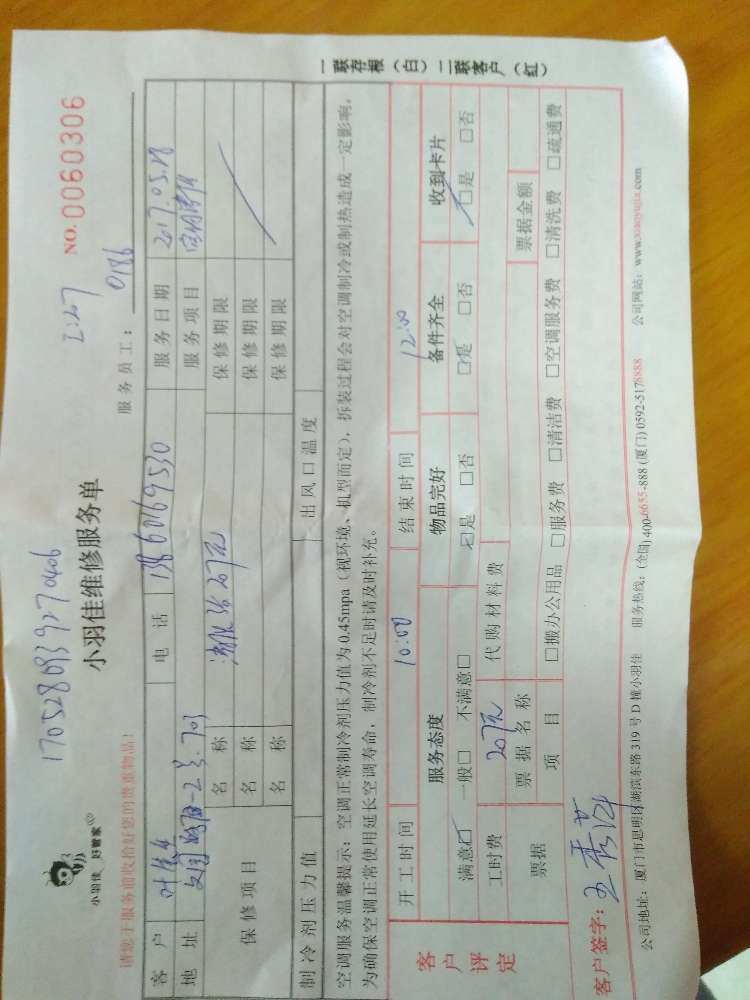 1705280939270406
小羽佳 好管家
小羽佳维修服务单
NO. 0060306
请您于服务前收拾好您的贵重物品!
服务员工: 0186
客户 电话 13860169530 服务日期 2017.05.28
地址 服务项目
保修项目 名称 保修期限
名称 保修期限
名称 保修期限
制冷剂压力值 出风口温度
空调服务温馨提示:空调正常制冷剂压力值为0.45mpa(视环境、机型而定),拆装过程会对空调制冷或制热造成一定影响,
为确保空调正常使用延长空调寿命,制冷剂不足时请及时补充。
开工时间 10:00 结束时间 12:00
客户评定 服务态度 物品完好 备件齐全 收到卡片
满意☑ 一般□ 不满意□ ☑是 □否 ☑是 □否 ☑是 □否
工时费 207元 代购材料费
票据 票据名称 票据金额
项目 □搬办公用品 □服务费 □清洁费 □空调服务费 □清洗费 □疏通费
客户签字:
公司地址:厦门市思明区湖滨东路319号D幢小羽佳 服务热线:(全国)400-6655-888(厦门)0592-5178888 公司网站:www.xiaoyujia.com
一联存根(白)二联客户(红)